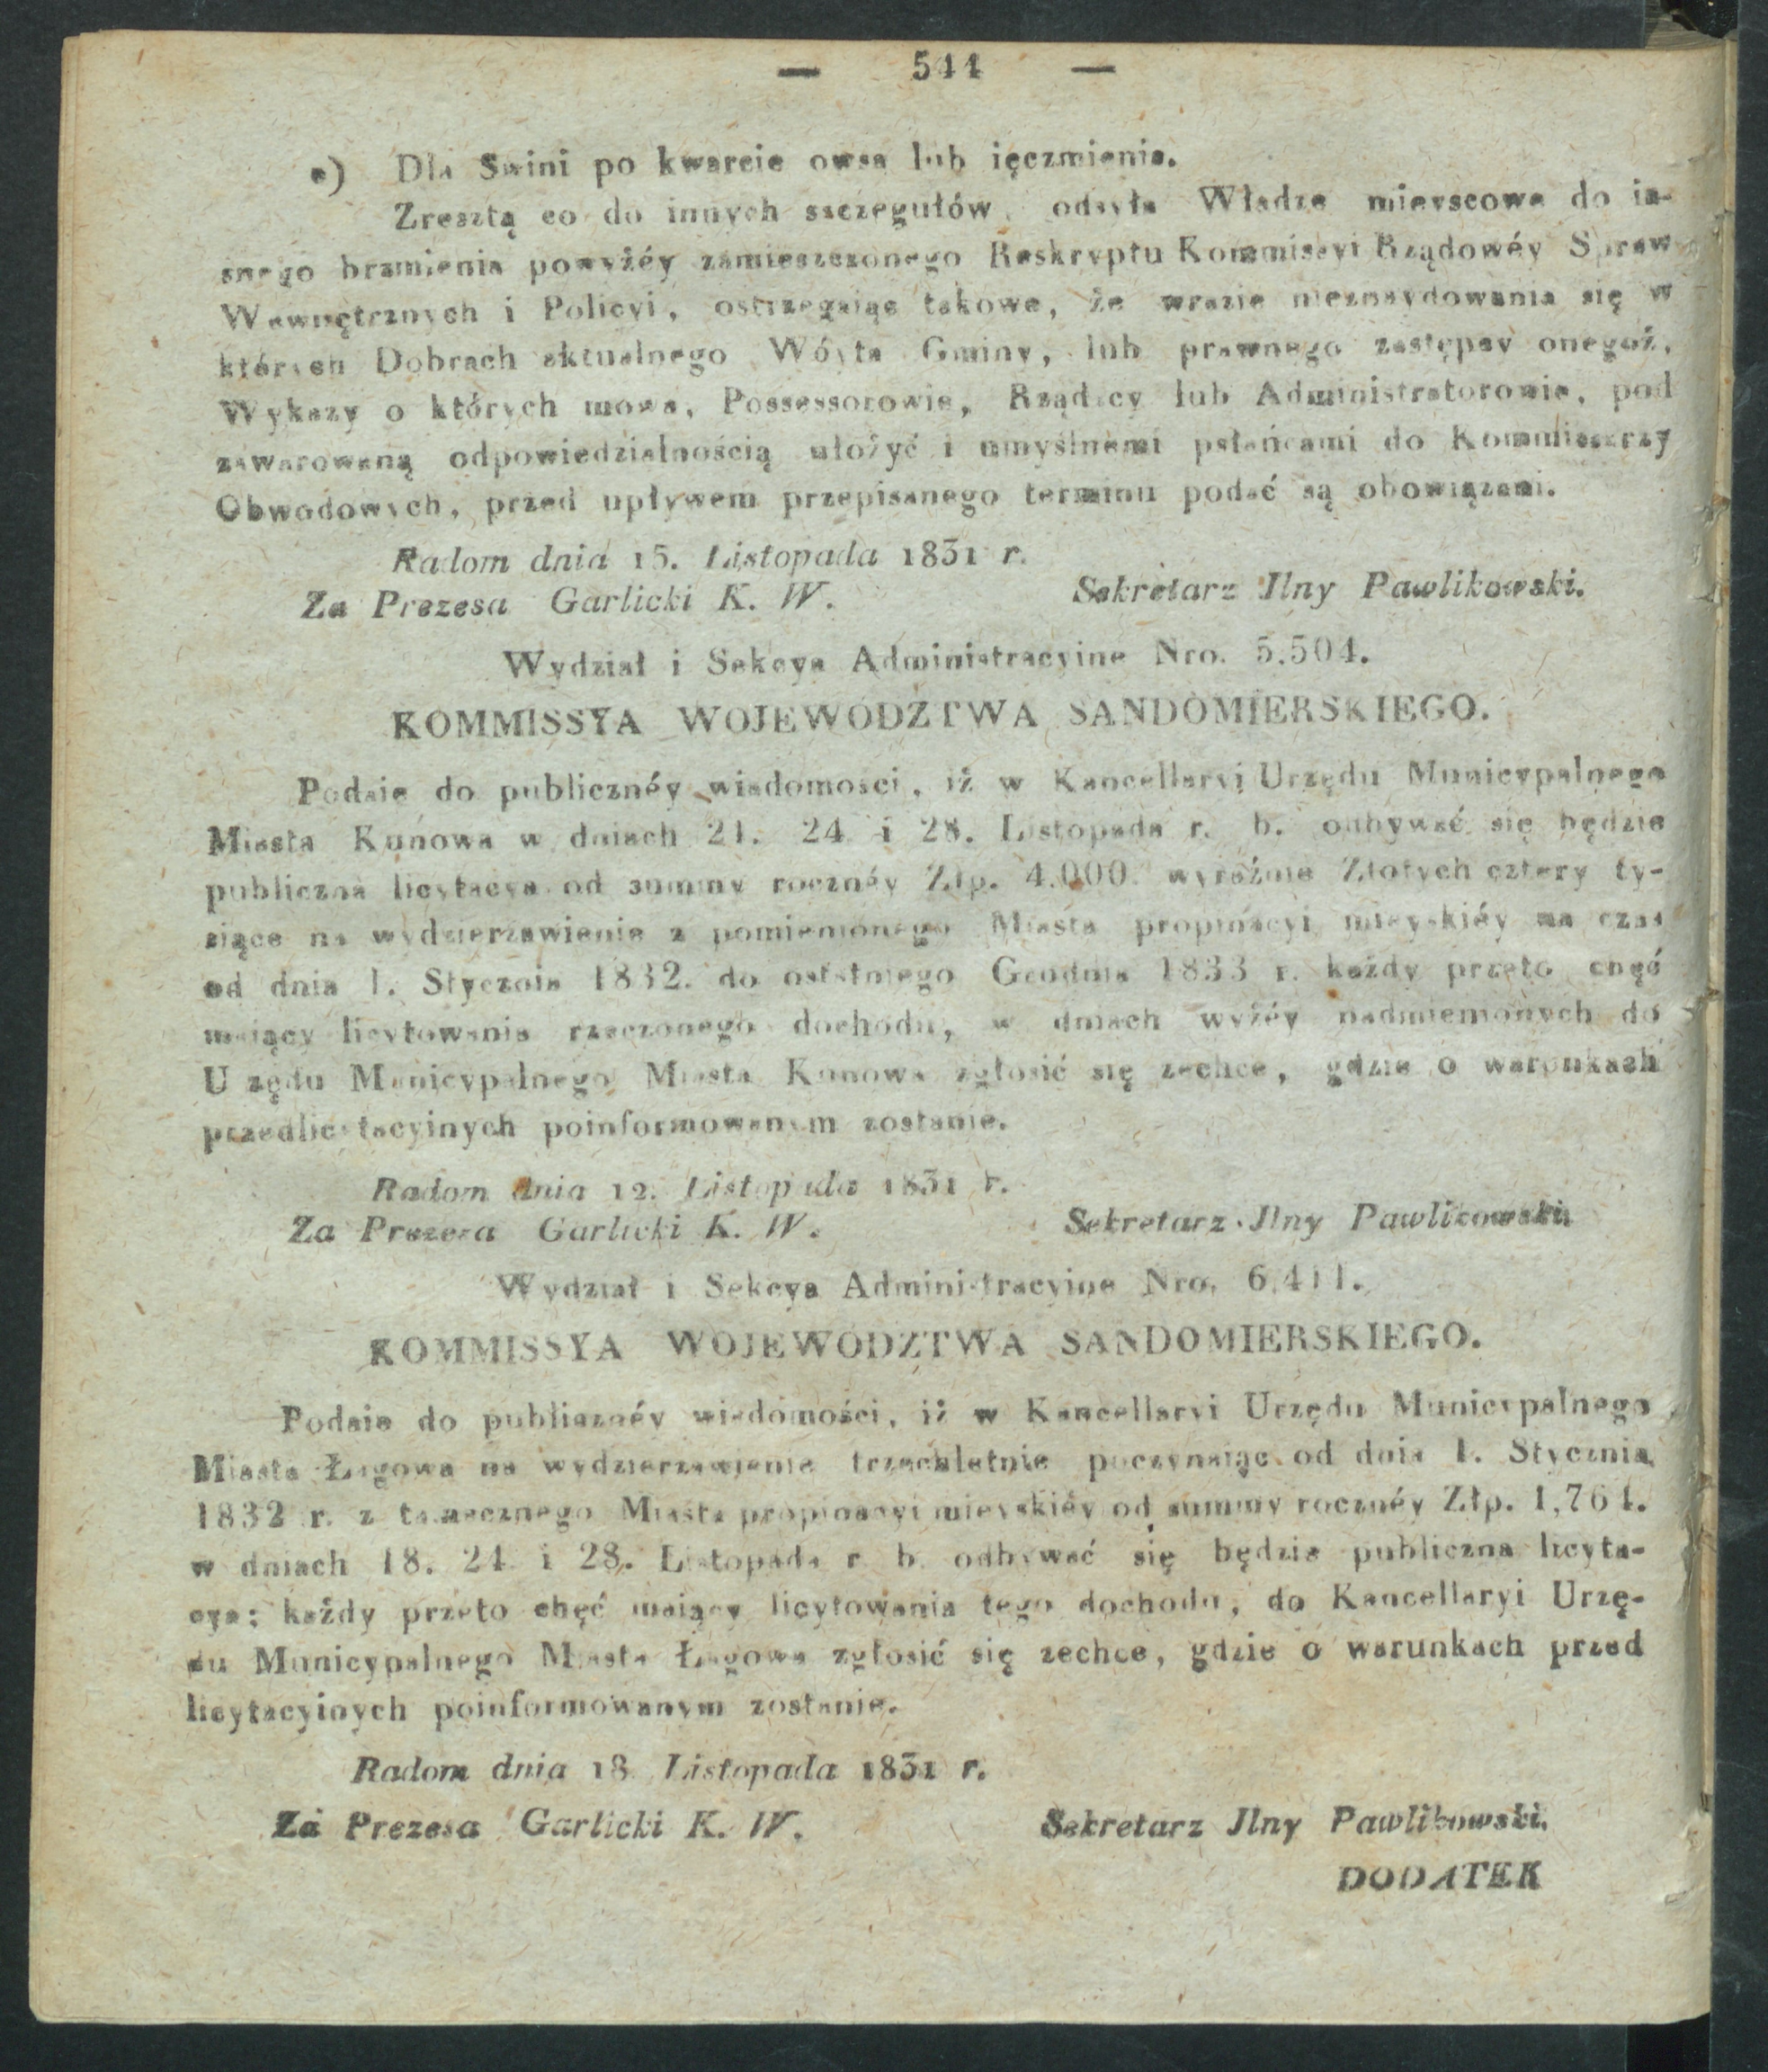 — 544 —
e) Dla Swini po kwarcie owsa lub ięczmienia.
Zresztą co do innych szczegułów, odsyła Władze mieyscowe do ia-
snego brzmienia powyżéy zamieszczonego Reskryptu Kommissyi Rządowéy Spraw
Wewnętrznych i Policyi, ostrzegaiąc takowe, że wrazie nieznaydowania się w
których Dobrach aktualnego Wóyta Gminy, lub prawnego zastępcy onegoż,
Wykazy o których mowa, Possessorowie, Rządzcy lub Administratorowie, pod
zawarowaną odpowiedzialnością ułożyć i umyślnemi psłańcami do Kommissarzy
Obwodowych, przed upływem przepisanego terminu podać są obowiązani.
Radom dnia 15. Listopada 1831 r.
Za Prezesa Garlicki K. W. Sekretarz Jlny Pawlikowski.
Wydział i Sekcya Administracyine Nro. 5,504.
KOMMISSYA WOJEWODZTWA SANDOMIERSKIEGO.
Podaie do publicznéy wiadomosci, iż w Kancellaryi Urzędu Municypalnego
Miasta Kunowa w dniach 21. 24 i 28. Listopada r. b. odbywać się będzie
publiczna licytacya od summy rocznéy Złp. 4,000. wyraźnie Złotych cztery ty-
siące na wydzierżawienie z pomienionego Miasta propinacyi mieyskiéy na czas
od dnia 1. Stycznia 1832. do ostatniego Grudnia 1833 r. każdy przeto chęć
maiący licytowania rzeczonego dochodu, w dniach wyżéy nadmienionych do
U zędu Municypalnego Miasta Kunowa zgłosić się zechce, gdzie o warunkach
przedlicytacyinych poinformowanym zostanie.
Radom dnia 12. Listopada 1831 r.
Za Prezesa Garlicki K. W. Sekretarz Jlny Pawlikowski
Wydział i Sekcya Administracyine Nro. 6,411.
KOMMISSYA WOJEWODZTWA SANDOMIERSKIEGO.
Podaie do publicznéy wiadomości, iż w Kancellaryi Urzędu Municypalnego
Miasta Łagowa na wydzierzawienie trzechletnie poczynaiąc od dnia 1. Stycznia
1832 r. z tamecznego Miasta propinacyi mieyskiéy od summy rocznéy Złp. 1,761.
w dniach 18. 24 i 28. Listopada r. b. odbywać się będzie publiczna licyta-
cya; każdy przeto chęć maiący licytowania tego dochodu, do Kancellaryi Urzę-
du Municypalnego Miasta Łagowa zgłosić się zechce, gdzie o warunkach przed
licytacyinych poinformowanym zostanie.
Radom dnia 18 Listopada 1831 r.
Za Prezesa Garlicki K. W. Sekretarz Jlny Pawlikowski.
DODATEK